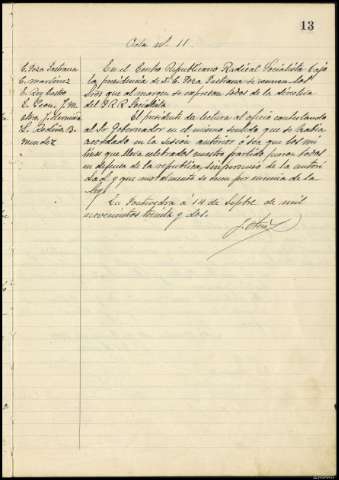 13
Acta nº 11
C. Poza Pastrana
C. Martinez
E. Rey
E. Leon, J. M
J.
L. B.
Mendez
En el Centro Republicano Radical Socialista bajo
la presidencia de D. C. Poza Pastrana se reunen los
Sres que al margen se expresan todos de la directiva
del P. R. R. Socialista
El presidente da lectura al oficio contestando
al Sr Gobernador en el mismo sentido que se habia
acordado en la sesión anterior ó sea que los mi
tines que lleva celebrados nuestro partido fueron todos
en defensa de la republica, sin permiso de la autori
dad y que moralmente se por encima de la
Ley.
En Pontevedra á 14 de Septbre de mil
novecientos treinta y dos.